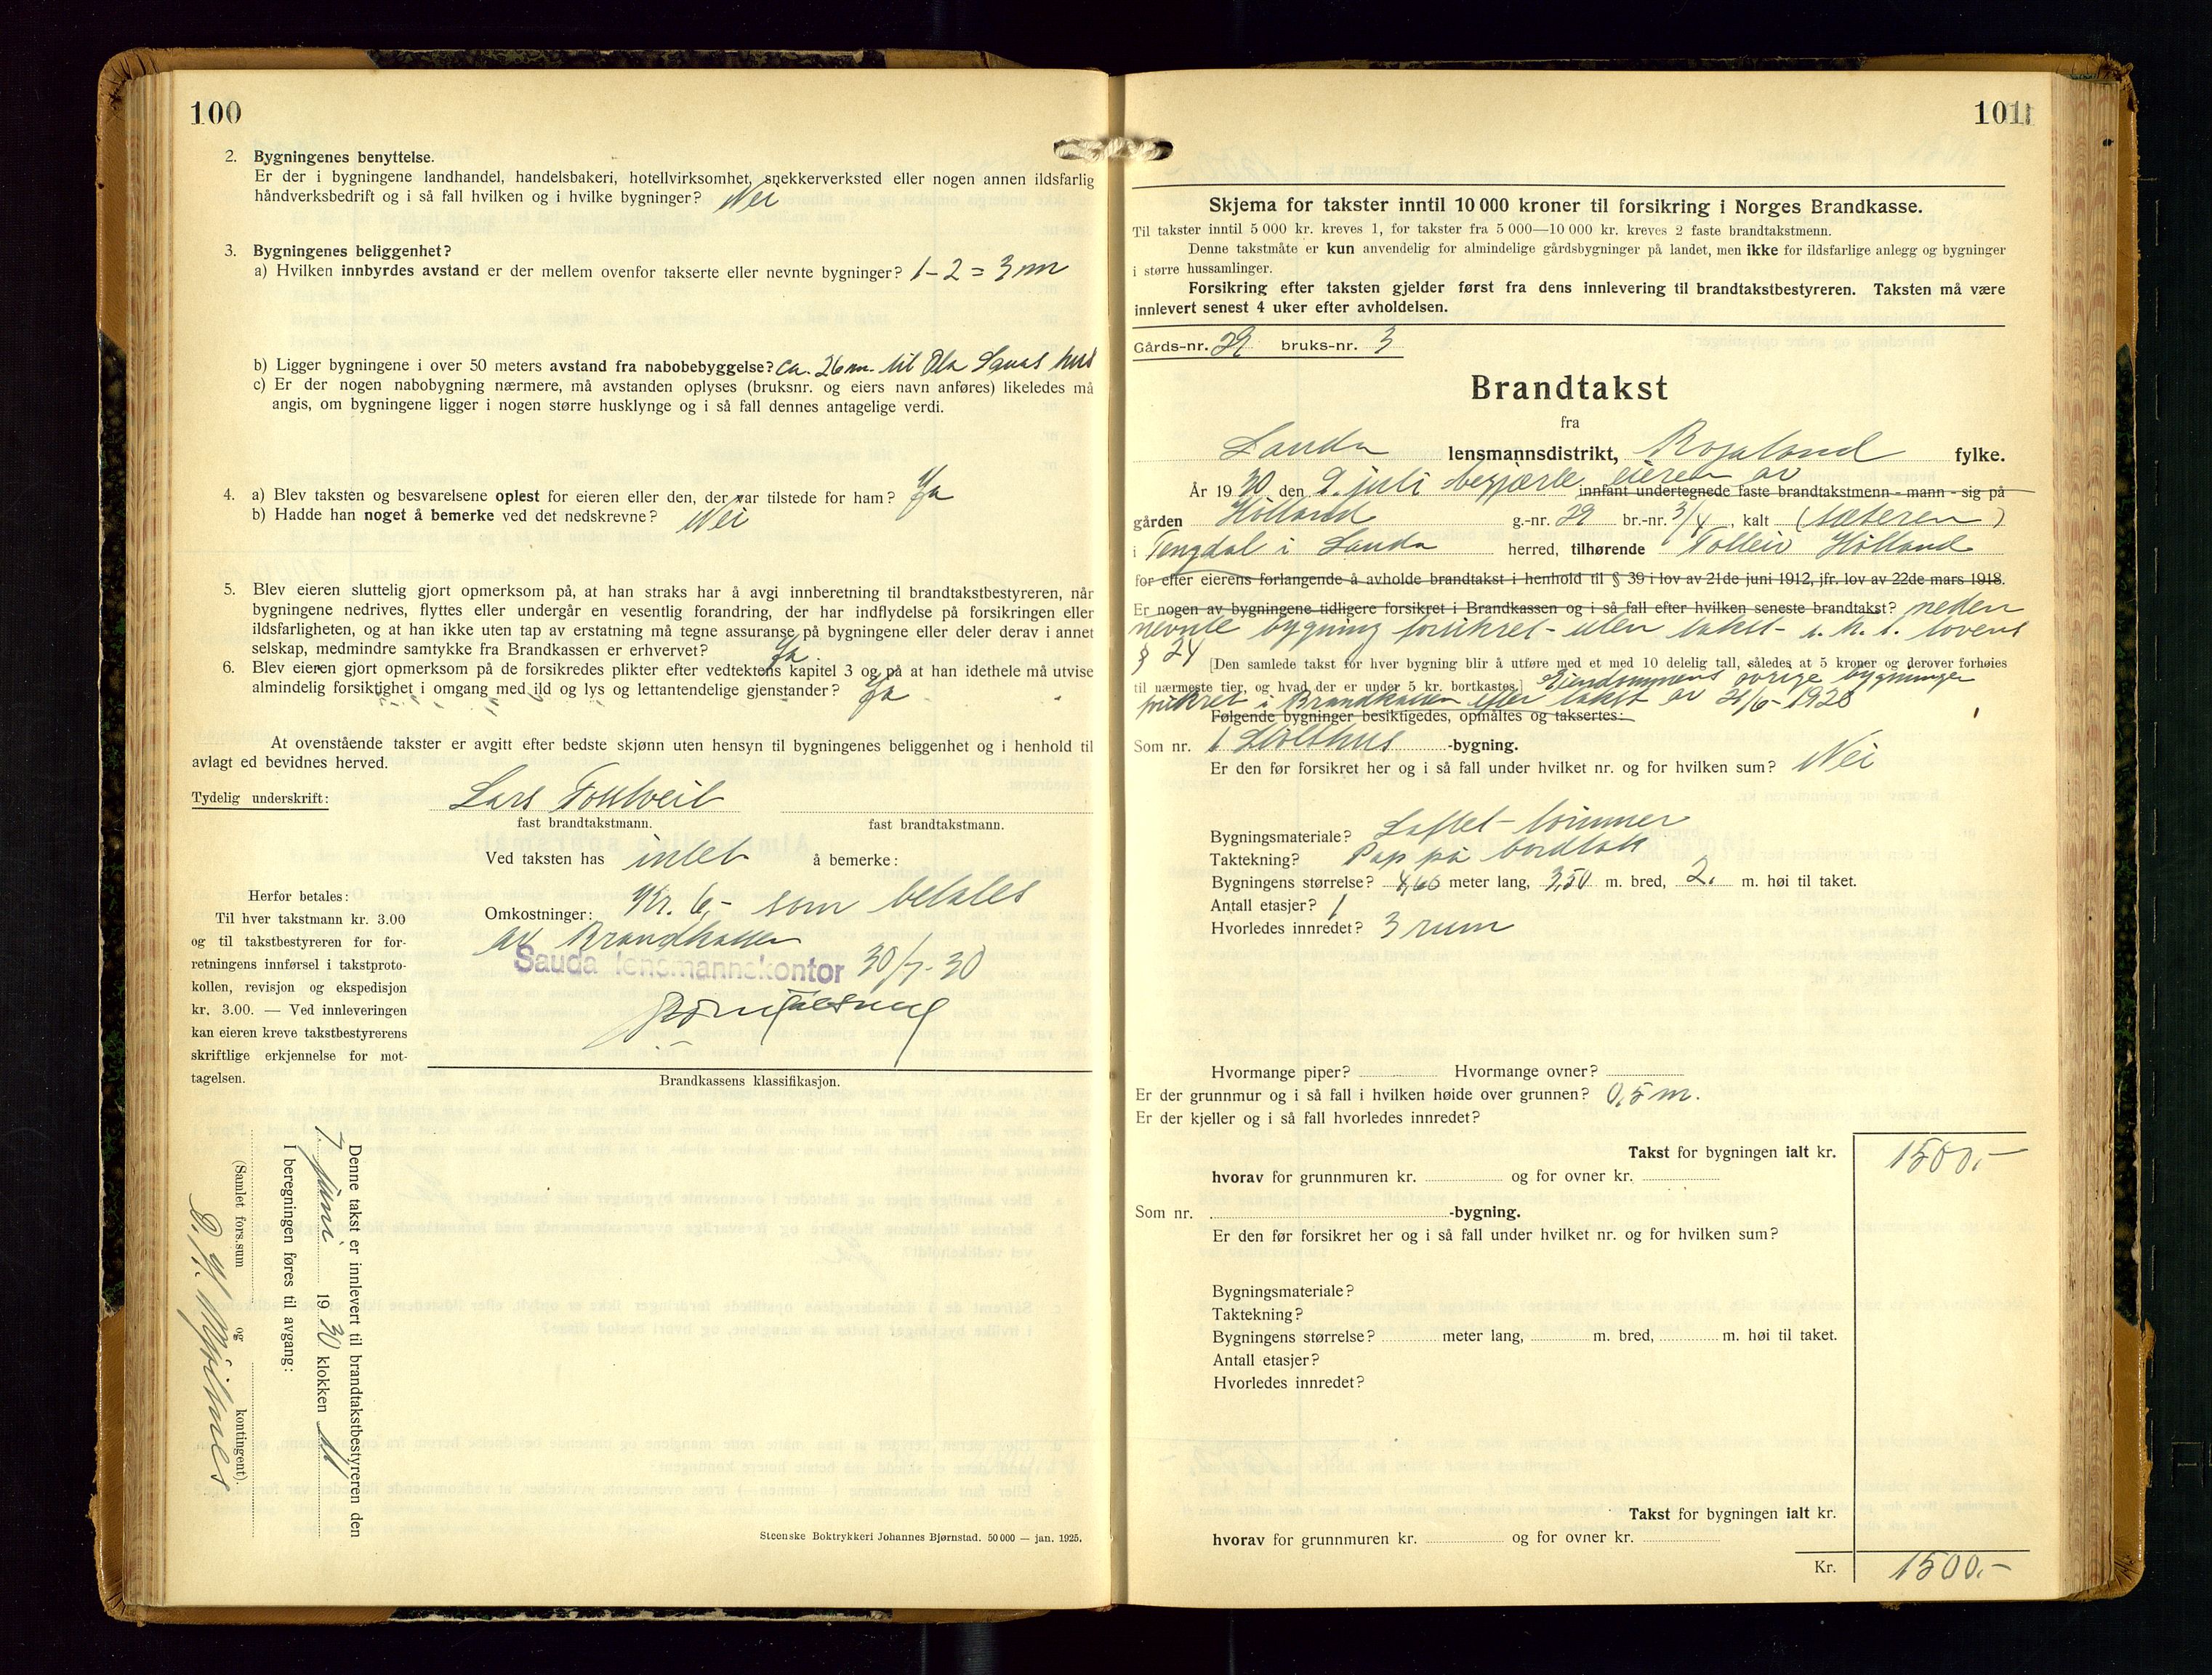 100
2. Bygningenes benyttelse.
Er der i bygningene landhandel, handelsbakeri, hotellvirksomhet, snekkerverksted eller nogen annen ildsfarlig
håndverksbedrift og i så fall hvilken og i hvilke bygninger? Nei
3. Bygningenes beliggenhet?
a) Hvilken innbyrdes avstand er der mellem ovenfor takserte eller nevnte bygninger? 1-2 = 3 m
b) Ligger bygningene i over 50 meters avstand fra nabobebyggelse? ca. 26 m. til Ola hus
c) Er der nogen nabobygning nærmere, må avstanden oplyses (bruksnr. og eiers navn anføres) likeledes må
angis, om bygningene ligger i nogen større husklynge og i så fall dennes antagelige verdi.
4. a) Blev taksten og besvarelsene oplest for eieren eller den, der var tilstede for ham? Ja
b) Hadde han noget å bemerke ved det nedskrevne? Nei
5. Blev eieren sluttelig gjort opmerksom på, at han straks har å avgi innberetning til brandtakstbestyreren, når
bygningene nedrives, flyttes eller undergår en vesentlig forandring, der har indflydelse på forsikringen eller
ildsfarligheten, og at han ikke uten tap av erstatning må tegne assuranse på bygningene eller deler derav i annet
selskap, medmindre samtykke fra Brandkassen er erhvervet? Ja.
6. Blev eieren gjort opmerksom på de forsikredes plikter efter vedtektens kapitel 3 og på at han idethele må utvise
almindelig forsiktighet i omgang med ild og lys og lettantendelige gjenstander? Ja
At ovenstående takster er avgitt efter bedste skjønn uten hensyn til bygningenes beliggenhet og i henhold til
avlagt ed bevidnes herved.
Tydelig underskrift: Lars
fast brandtakstmann. fast brandtakstmann.
Ved taksten has intet å bemerke:
Omkostninger: Kr. 6,- som betales
av Brandkassen
Sauda lensmannskontor 30/7-30
Herfor betales:
Til hver takstmann kr. 3.00
og til takstbestyreren for for-
retningens innførsel i takstproto-
kollen, revisjon og ekspedisjon
kr. 3.00. — Ved innleveringen
kan eieren kreve takstbestyrerens
skriftlige erkjennelse for mot-
tagelsen.
Brandkassens klassifikasjon.
Denne takst er innlevert til brandtakstbestyreren den
7. juni 1930 klokken 11
I beregningen føres til avgang:
(Samlet fors.sum og kontingent).
Steenske Boktrykkeri Johannes Bjørnstad. 50 000 — jan. 1925.
101
Skjema for takster inntil 10 000 kroner til forsikring i Norges Brandkasse.
Til takster inntil 5 000 kr. kreves 1, for takster fra 5 000—10 000 kr. kreves 2 faste brandtakstmenn.
Denne takstmåte er kun anvendelig for almindelige gårdsbygninger på landet, men ikke for ildsfarlige anlegg og bygninger
i større hussamlinger.
Forsikring efter taksten gjelder først fra dens innlevering til brandtakstbestyreren. Taksten må være
innlevert senest 4 uker efter avholdelsen.
Gårds-nr. 29 bruks-nr. 3
Brandtakst
fra
Sauda lensmannsdistrikt, Rogaland fylke.
År 1930 den 9. juli begjærte eieren av innfant undertegnede faste brandtakstmenn - mann - sig på
gården Hølland g.-nr. 29 br.-nr. 3/4, kalt (sæteren)
i Tengdal i Sauda herred, tilhørende Tolleiv Hølland
for efter eierens forlangende å avholde brandtakst i henhold til § 39 i lov av 21de juni 1912, jfr. lov av 22de mars 1918.
Er nogen av bygningene tidligere forsikret i Brandkassen og i så fall efter hvilken seneste brandtakst? neden
nevnte bygning forsikret - uten takst - i. h. t. lovens
§ 24
[Den samlede takst for hver bygning blir å utføre med et med 10 delelig tall, således at 5 kroner og derover forhøies
til nærmeste tier, og hvad der er under 5 kr. bortkastes.] Eiendommens øvrige bygninger
forsikret i Brandkassen efter takst av 21/6-1928
Følgende bygninger besiktigedes, opmåltes og taksertes:
Som nr. 1 Selhus -bygning.
Er den før forsikret her og i så fall under hvilket nr. og for hvilken sum? Nei
Bygningsmateriale? Laftet tømmer
Taktekning? Pap på bordtak
Bygningens størrelse? 4,60 meter lang, 3,50 m. bred, 2. m. høi til taket.
Antall etasjer? 1
Hvorledes innredet? 3 rum
Hvormange piper? Hvormange ovner?
Er der grunnmur og i så fall i hvilken høide over grunnen? 0,5 m.
Er der kjeller og i så fall hvorledes innredet?
Takst for bygningen ialt kr. 1500.-
hvorav for grunnmuren kr. og for ovner kr.
Som nr. -bygning.
Er den før forsikret her og i så fall under hvilket nr. og for hvilken sum?
Bygningsmateriale?
Taktekning?
Bygningens størrelse? meter lang, m. bred, m. høi til taket.
Antall etasjer?
Hvorledes innredet?
Takst for bygningen ialt kr.
hvorav for grunnmuren kr. og for ovner kr.
Kr. 1500.-